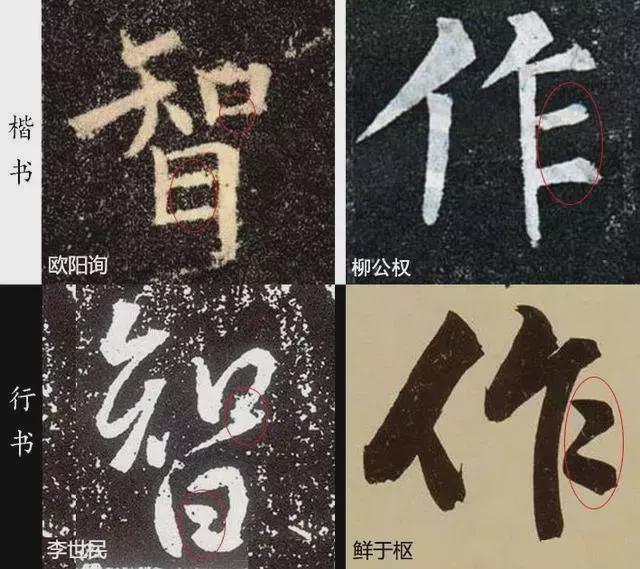 楷书
智
欧阳询
作
柳公权
行书
智
李世民
作
鲜于枢